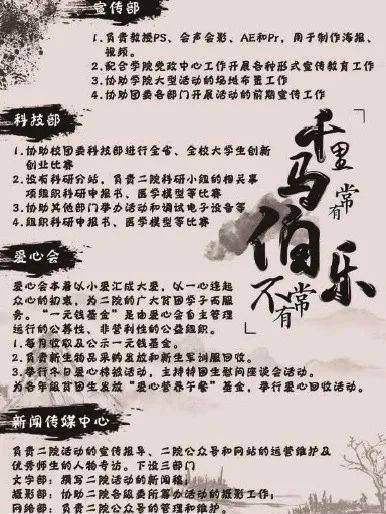 宣传部
1.负责教授PS、会声会影、AE和Pr,用于制作海报、
视频。
2.配合学院党政中心工作开展各种形式宣传教育工作
3.协助学院大型活动的场地布置工作
4.协助团委各部门开展活动的前期宣传工作
科技部
1.协助校团委科技部进行全省、全校大学生创新
创业比赛
2.设有科研分站,负责二院科研小组的相关事
项组织科研申报书、医学模型等比赛
3.协助其他部门举办活动和调试电子设备等
4.组织科研申报书、医学模型等比赛
千里马常有
伯乐不常有
爱心会
爱心会本着以小爱汇成大爱,以一心连起
众心的初衷,为二院的广大贫困学子而服
务。“一元钱基金”是由爱心会自主管理
运行的公募性、非营利性的公益组织。
1.每月收取及公示一元钱基金。
2.负责新生物品采购发放和新生军训服回收。
3.举行冬日爱心棉被活动,主持特困生慰问座谈会活动。
为各年级贫困生发放“爱心营养午餐”基金,举行爱心回收活动。
新闻传媒中心
负责二院活动的宣传报导、二院公众号和网站的运营维护及
优秀师生的人物专访。下设三部门
文字部:撰写二院活动的新闻稿;
摄影部:协助二院各级委所筹办活动的摄影工作;
网络部:负责二院公众号的管理和维护;